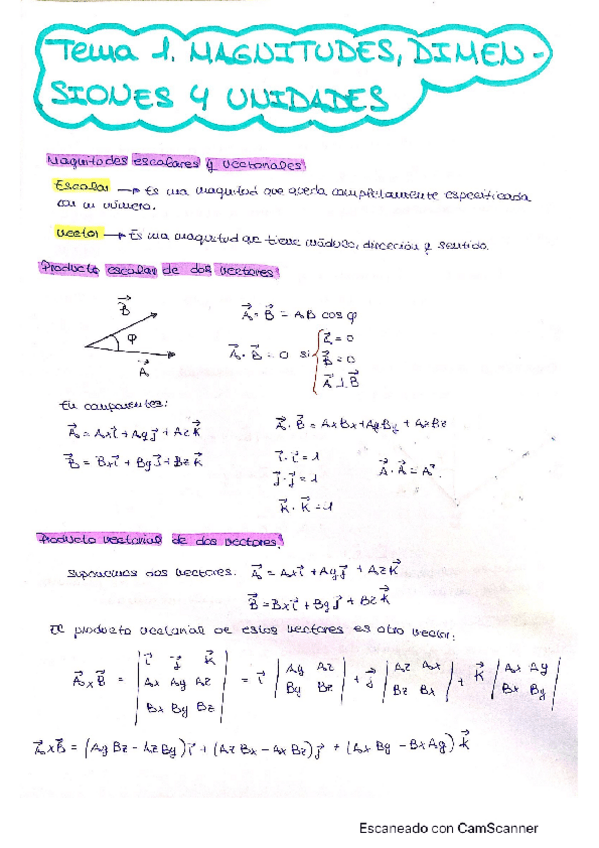 Tema 1. MAGNITUDES, DIMEN-
SIONES Y UNIDADES
Magnitudes escalares y vectoriales
Escalar → Es una magnitud que queda completamente especificada
con un número.
Vector → Es una magnitud que tiene módulo, dirección y sentido.
Producto escalar de dos vectores:
B⃗
φ
A⃗
A⃗ · B⃗ = AB cos φ
A⃗ · B⃗ = 0 si { A⃗ = 0
B⃗ = 0
A⃗ ⊥ B⃗
En componentes:
A⃗ = Axi⃗ + Ayj⃗ + Azk⃗
B⃗ = Bxi⃗ + Byj⃗ + Bzk⃗
A⃗ · B⃗ = AxBx + AyBy + AzBz
i⃗ · i⃗ = 1
j⃗ · j⃗ = 1
k⃗ · k⃗ = 1
A⃗ · A⃗ = A²
Producto vectorial de dos vectores:
Suponemos dos vectores. A⃗ = Axi⃗ + Ayj⃗ + Azk⃗
B⃗ = Bxi⃗ + Byj⃗ + Bzk⃗
El producto vectorial de estos vectores es otro vector:
A⃗ x B⃗ = | i⃗ j⃗ k⃗ | = i⃗ | Ay Az | + j⃗ | Az Ax | + k⃗ | Ax Ay |
| Ax Ay Az | | By Bz | | Bz Bx | | Bx By |
| Bx By Bz |
A⃗ x B⃗ = (Ay Bz - Az By) i⃗ + (Az Bx - Ax Bz) j⃗ + (Ax By - Bx Ay) k⃗
Escaneado con CamScanner